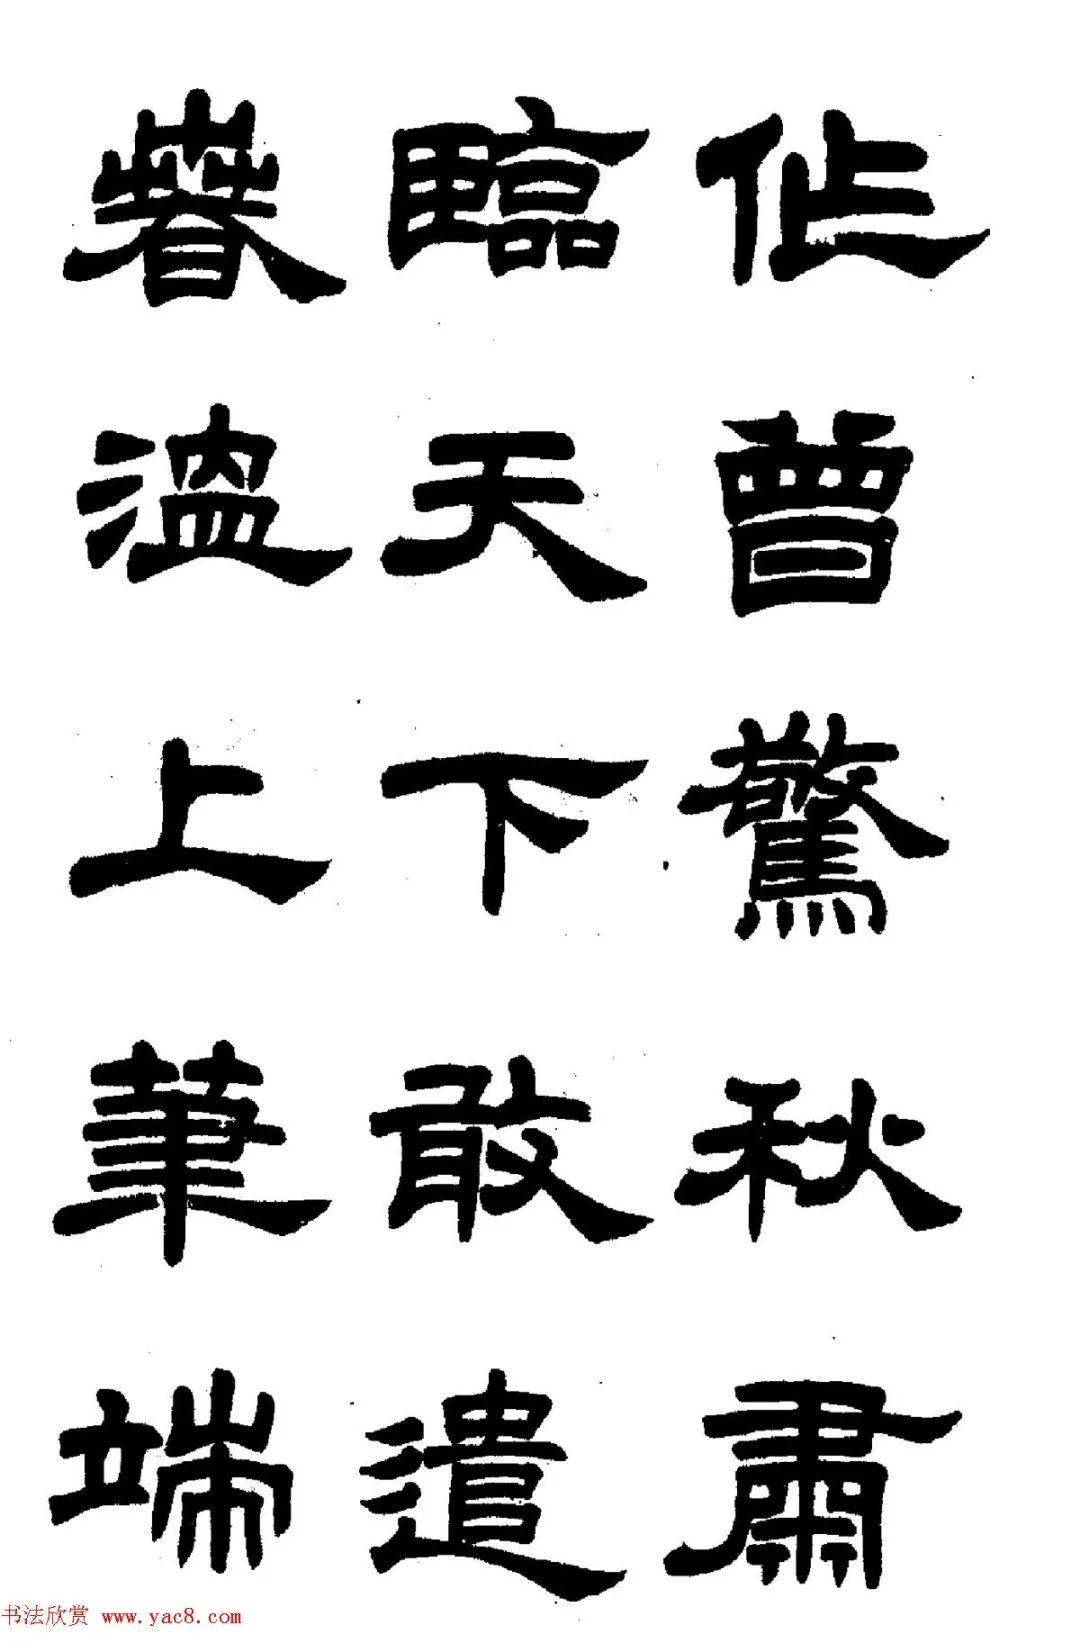 作曾驚秋肅
臨天下敢遣
春溫上筆端
书法欣赏 www.yac8.com